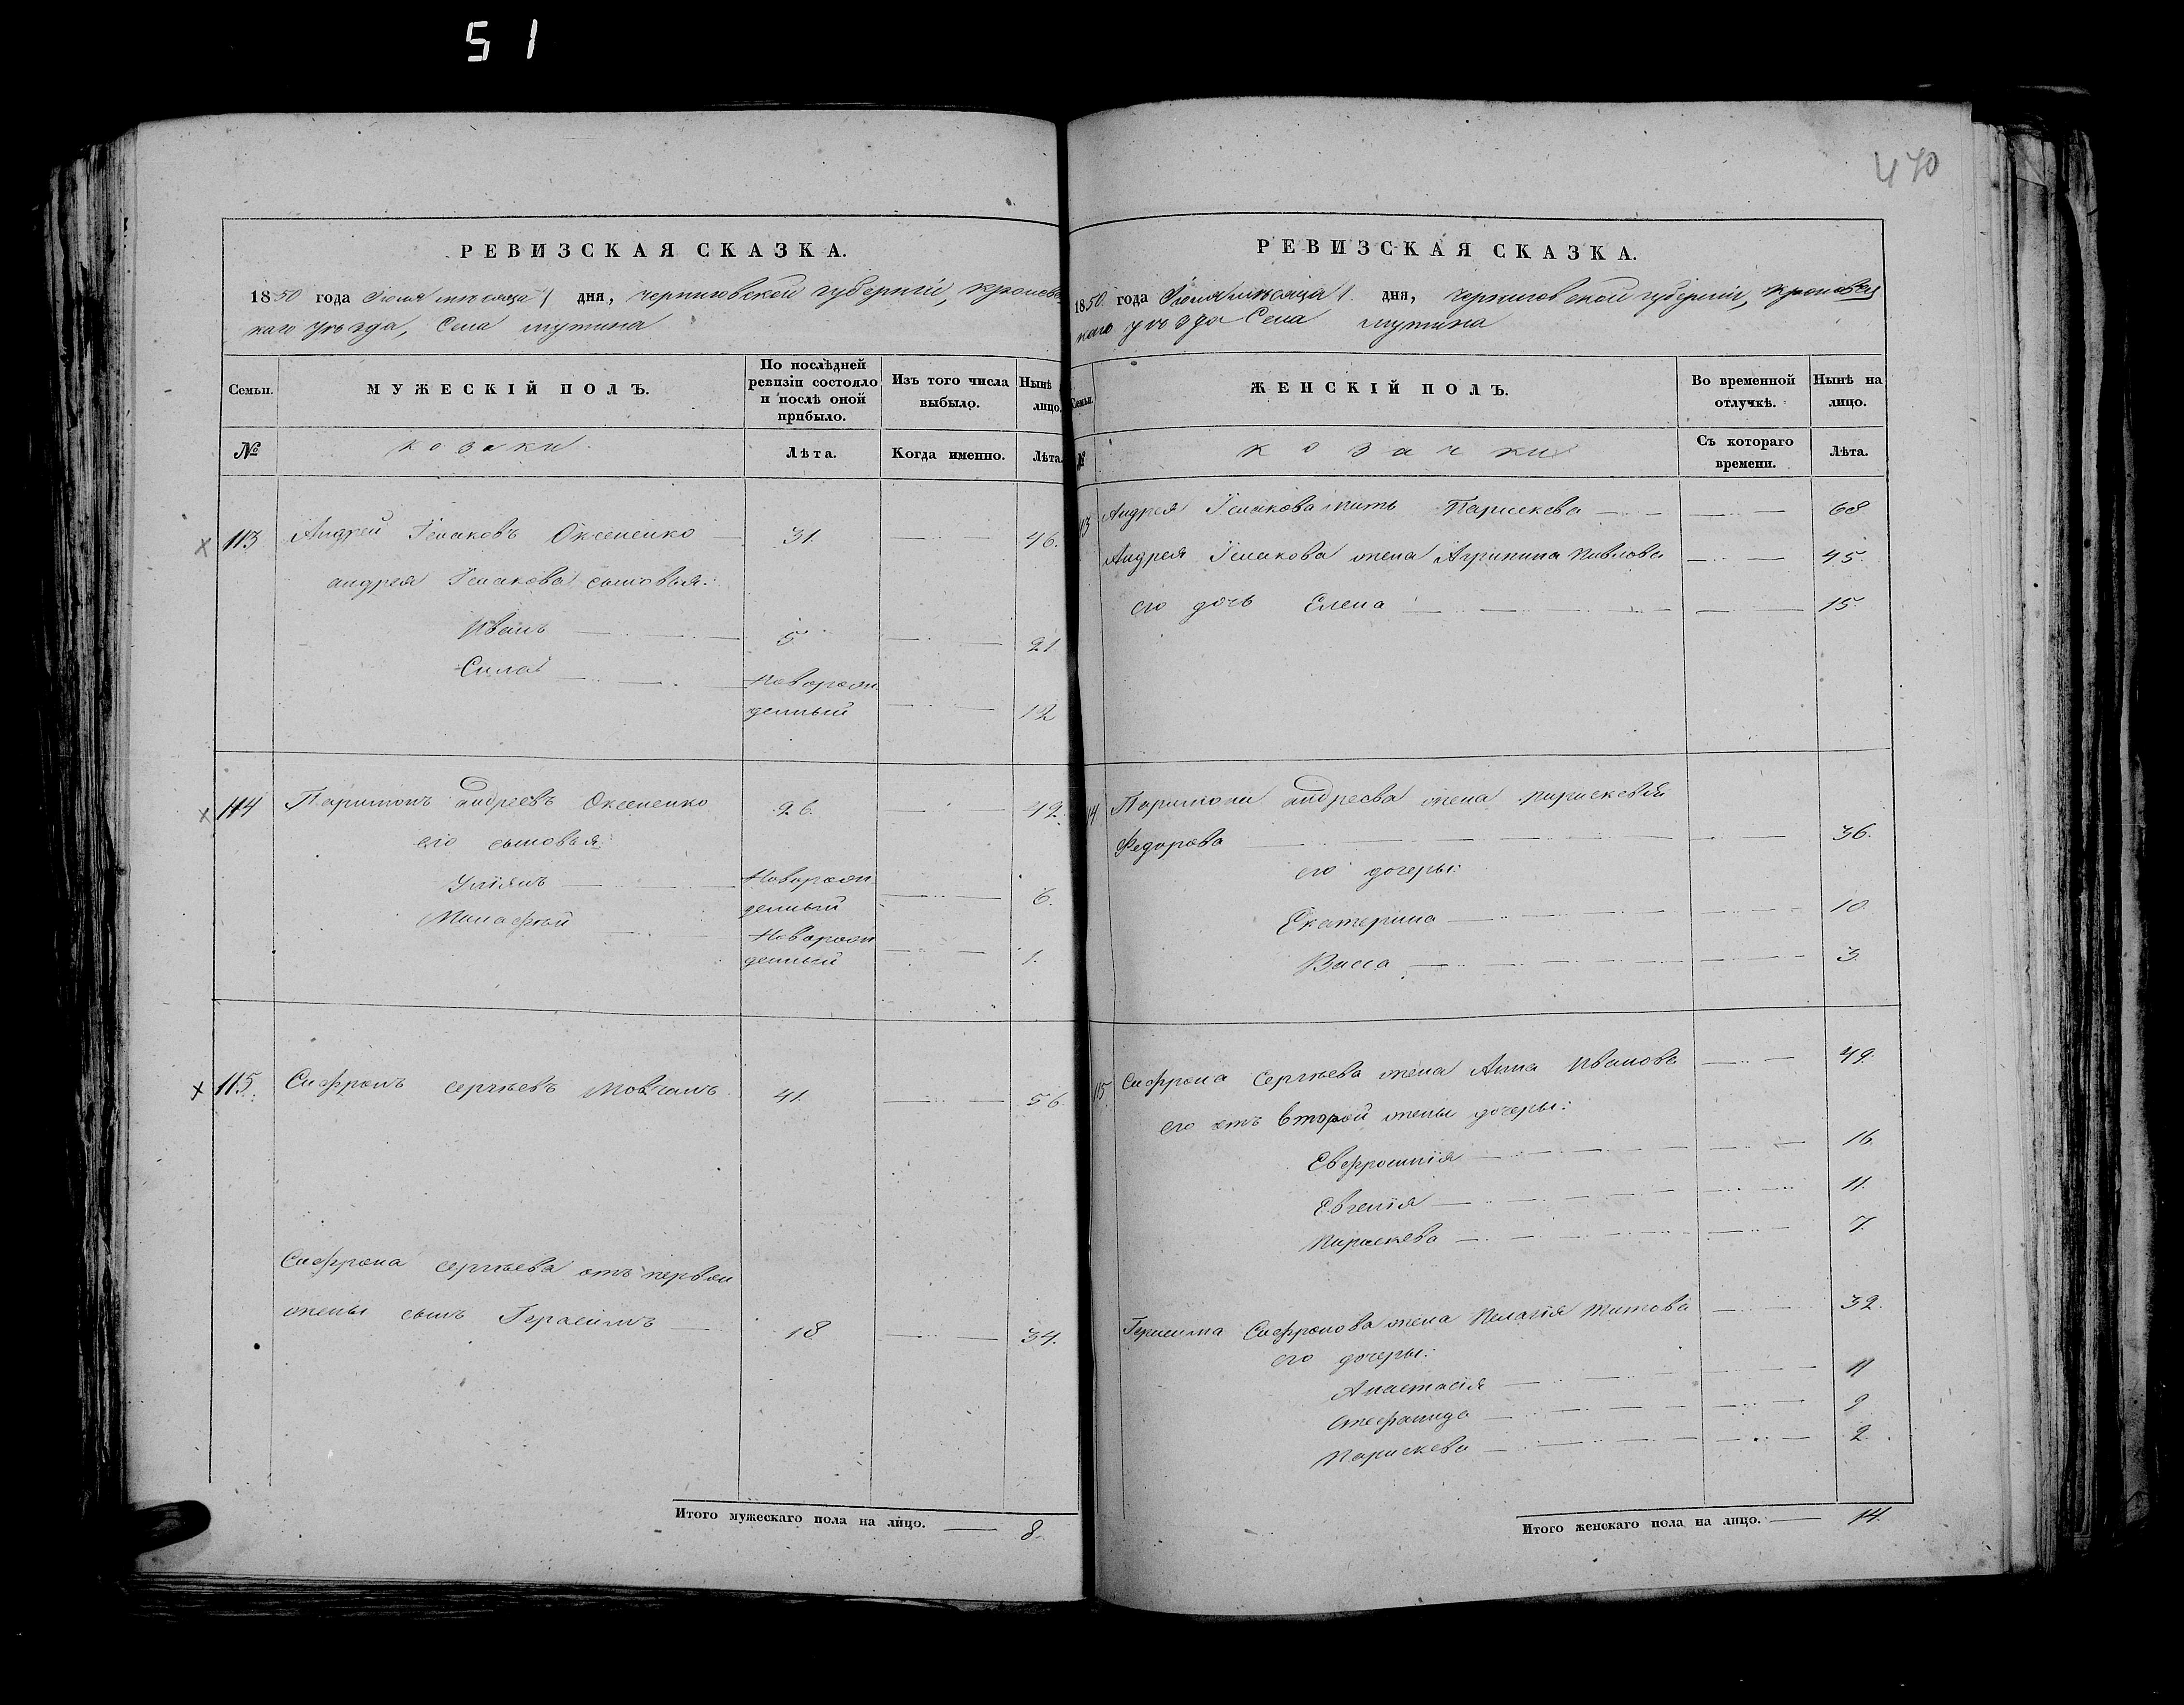 51
470
РЕВИЗСКАЯ СКАЗКА.
1850 года Іюля мѣсяца 1 дня, Черниговской губерніи, Кролевец
каго уѣзда, Села Мутина
Семьи.
МУЖЕСКІЙ ПОЛЪ.
По послѣдней ревизіи состояло и послѣ оной прибыло.
Изъ того числа выбыло.
Нынѣ лицо.
№
козаки
Лѣта.
Когда именно.
Лѣта.
113 Андрей Исааковъ Оксененко 31. 46.
андрея Исаакова сыновья:
Иванъ 5 21
Сила Новорож
денный 12
114 Паримонъ андреевъ Оксененко 26. 42.
его сыновья:
Уліянъ Новорож
денный 6.
Минафѣй Новорож
денный 1.
115. Сафронъ сергѣевъ Мовчанъ 41. 56
Сафрона сергѣева отъ первой
жены сынъ Герасимъ 18 34.
Итого мужескаго пола на лицо. 8.
РЕВИЗСКАЯ СКАЗКА.
1850 года Іюля мѣсяца 1. дня, Черниговской губерніи, Кролевец
каго уѣзда Села Мутина
Семьи.
ЖЕНСКІЙ ПОЛЪ.
Во временной отлучкѣ.
Нынѣ на лицо.
№
козачки
Съ котораго времени.
Лѣта.
13 Андрея Исаакова мать Параскева 68
Андрея Исаакова жена Агрипина Павлова 45.
его дочь Елена 15.
14 Паримона андреева жена параскевія
Федорова 36.
его дочеры:
Екатерина 10.
Васса 3.
115 Сафрона Сергѣева жена Анна Иванова 49.
его отъ второй жены дочеры:
Евфросинія 16.
Евгенія 11.
Параскева 7.
Герасима Сафронова жена Пелагія Титова 32.
его дочеры:
Анастасія 11
Стефанида 9
Параскева 2.
Итого женскаго пола на лицо. 14.